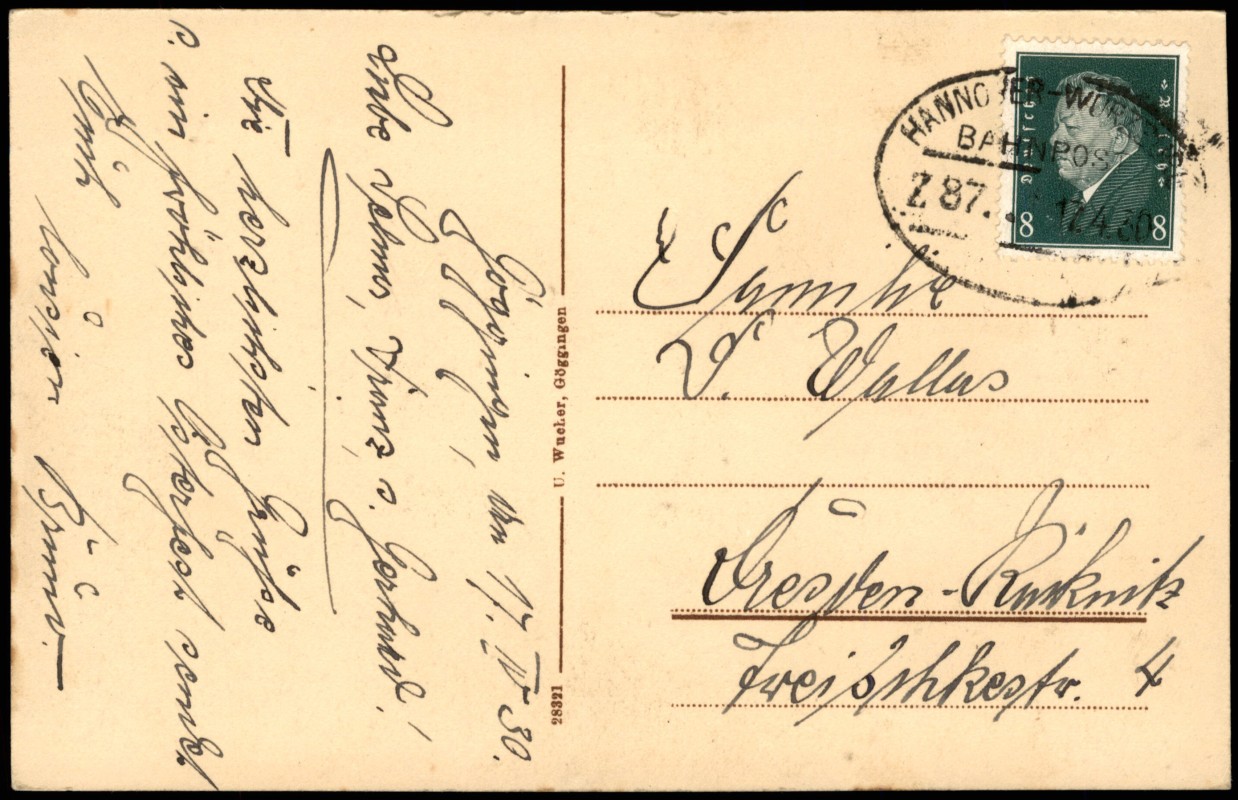 Göggingen, am 17. IV 30.
Liebe Hanns, Franz u. Gerhard!
Die herzlichsten Grüße
u. ein fröhliches Osterfest sendet
Euch
Bruno.
U. Wucher, Göggingen
28321
HANNOVER-WÜR
BAHNPOST
Z 87. 17.4.30
Deutsches Reich
8 8
Familie
F. Wallas
Dresden-Räcknitz
4